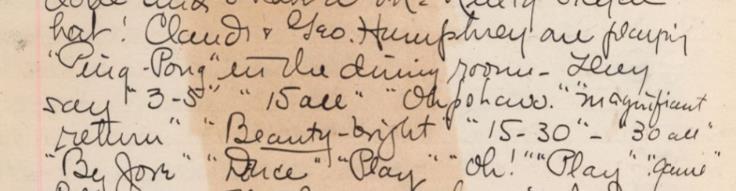 hat! Claudi & Geo. Humphrey are playing
"Ping-Pong" in the dining room - They
say "3-5" "15 all" "Oh pshaw." "magnifiant
return" "Beauty-bright" "15-30" - "30 all"
"By Jove" "Deuce" "Play" "Oh!" "Play" "game"